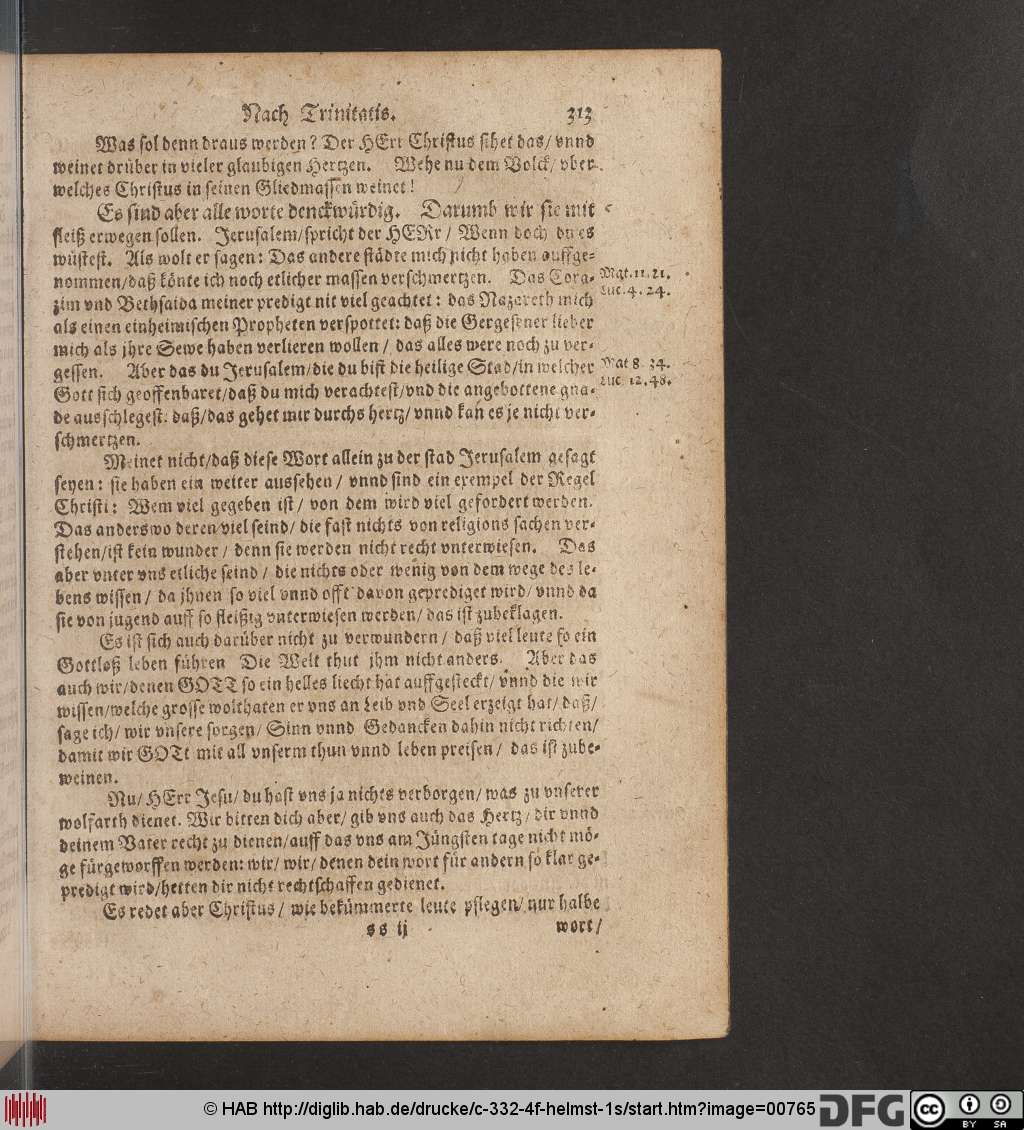 Nach Trinitatis. 313
Was sol denn draus werden? Der HErr Christus sihet das/ vnnd
weinet drüber in vieler glaubigen Hertzen. Wehe nu dem Volck/ vber
welches Christus in seinen Gliedmassen weinet!
Es sind aber alle worte denckwürdig. Darumb wir sie mit
fleiß erwegen sollen. Jerusalem/spricht der HERr/ Wenn doch du es
wüstest. Als wolt er sagen: Das andere städte mich nicht haben auffge-
nommen/daß könte ich noch etlicher massen verschmertzen. Das Cora-
Mat. 11. 21.
zim vnd Bethsaida meiner predigt nit viel geachtet: das Nazareth mich
Luc. 4. 24.
als einen einheimischen Propheten verspottet: daß die Gergesener lieber
mich als jhre Sewe haben verlieren wollen/ das alles were noch zu ver-
gessen. Aber das du Jerusalem/die du bist die heilige Stad/in welcher
Mat 8. 34.
Gott sich geoffenbaret/daß du mich verachtest/vnd die angebottene gna-
Luc 12. 48.
de ausschlegest. daß/das gehet mir durchs hertz/ vnnd kan es je nicht ver-
schmertzen.
Meinet nicht/daß diese Wort allein zu der stad Jerusalem gesagt
seyen: sie haben ein weiter aussehen/ vnnd sind ein exempel der Regel
Christi: Wem viel gegeben ist/ von dem wird viel gefordert werden.
Das anderswo deren/viel seind/ die fast nichts von religions sachen ver-
stehen/ist kein wunder/ denn sie werden nicht recht vnterwiesen. Das
aber vnter vns etliche seind/ die nichts oder wenig von dem wege des le-
bens wissen/ da jhnen so viel vnnd offt davon geprediget wird/ vnnd da
sie von jugend auff so fleißig vnterwiesen werden/ das ist zubeklagen.
Es ist sich auch darüber nicht zu verwundern/ daß viel leute so ein
Gottloß leben führen Die Welt thut jhm nicht anders. Aber das
auch wir/denen GOTT so ein helles liecht hat auffgesteckt/ vnnd die wir
wissen/welche grosse wolthaten er vns an Leib vnd Seel erzeigt hat/ daß/
sage ich/ wir vnsere sorgen/ Sinn vnnd Gedancken dahin nicht richten/
damit wir GOTt mit all vnserm thun vnnd leben preisen/ das ist zube-
weinen.
Nu/ HErr Jesu/ du hast vns ja nichts verborgen/ was zu vnserer
wolfarth dienet. Wir bitten dich aber/ gib vns auch das Hertz/ dir vnnd
deinem Vater recht zu dienen/auff das vns am Jüngsten tage nicht mö-
ge fürgeworffen werden: wir/ wir/ denen dein wort für andern so klar ge-
predigt wird/hetten dir nicht rechtschaffen gedienet.
Es redet aber Christus/ wie bekümmerte leute pflegen/ nur halbe
ss ij wort/
© HAB http://diglib.hab.de/drucke/c-332-4f-helmst-1s/start.htm?image=00765
DFG
cc
BY SA